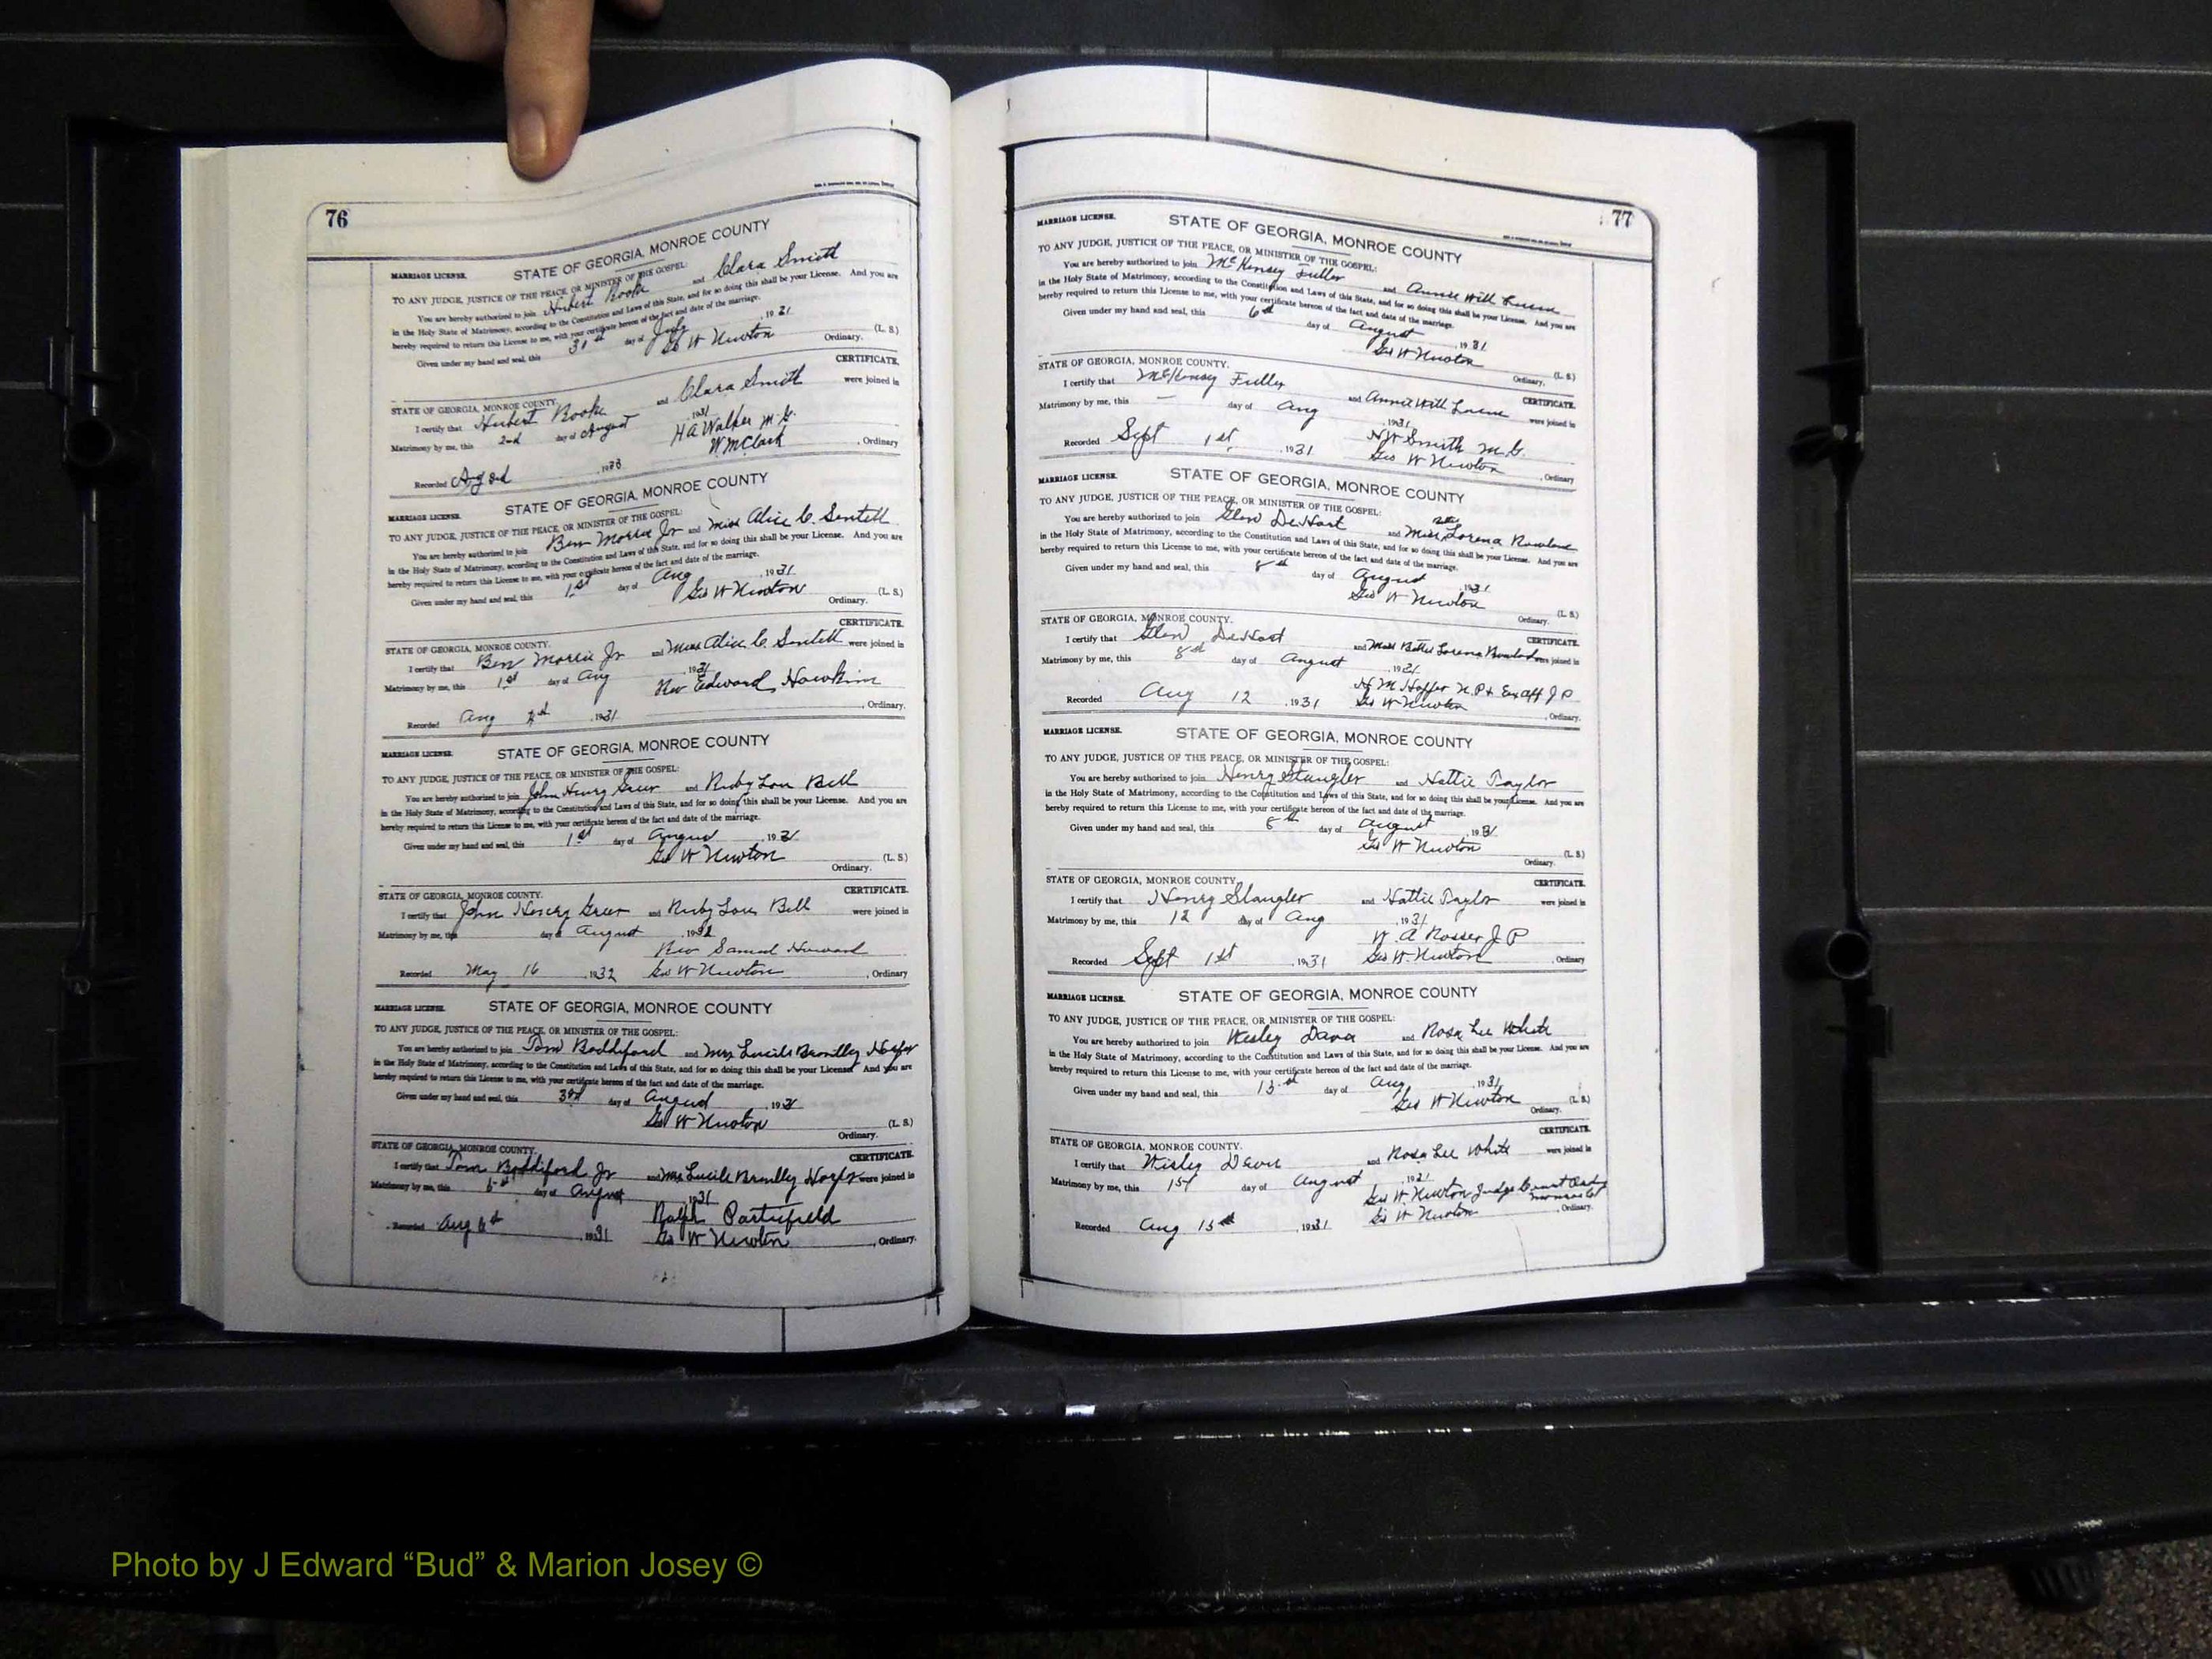 76
MARRIAGE LICENSE. STATE OF GEORGIA, MONROE COUNTY
TO ANY JUDGE, JUSTICE OF THE PEACE, OR MINISTER OF THE GOSPEL:
You are hereby authorized to join Hubert Rooke and Clara Smith
in the Holy State of Matrimony, according to the Constitution and Laws of this State, and for so doing this shall be your License. And you are
hereby required to return this License to me, with your certificate hereon of the fact and date of the marriage.
Given under my hand and seal, this 31st day of July, 1931
Geo W Newton (L. S.)
Ordinary.
STATE OF GEORGIA, MONROE COUNTY. CERTIFICATE.
I certify that Hubert Rooke and Clara Smith were joined in
Matrimony by me, this 2nd day of August, 1931
H A Walker M.G.
Recorded Aug 3rd, 19 W M Clark, Ordinary
MARRIAGE LICENSE. STATE OF GEORGIA, MONROE COUNTY
TO ANY JUDGE, JUSTICE OF THE PEACE, OR MINISTER OF THE GOSPEL:
You are hereby authorized to join Ben Morris Jr and Miss Alice C. Sentell
in the Holy State of Matrimony, according to the Constitution and Laws of this State, and for so doing this shall be your License. And you are
hereby required to return this License to me, with your certificate hereon of the fact and date of the marriage.
Given under my hand and seal, this 1st day of Aug, 1931
Geo W Newton (L. S.)
Ordinary.
STATE OF GEORGIA, MONROE COUNTY. CERTIFICATE.
I certify that Ben Morris Jr and Miss Alice C Sentell were joined in
Matrimony by me, this 1st day of Aug, 1931
Rev Edward Hawkins
Recorded Aug, 1931, Ordinary.
MARRIAGE LICENSE. STATE OF GEORGIA, MONROE COUNTY
TO ANY JUDGE, JUSTICE OF THE PEACE, OR MINISTER OF THE GOSPEL:
You are hereby authorized to join John Henry Greer and Ruby Lou Bell
in the Holy State of Matrimony, according to the Constitution and Laws of this State, and for so doing this shall be your License. And you are
hereby required to return this License to me, with your certificate hereon of the fact and date of the marriage.
Given under my hand and seal, this 1st day of August, 1931
Geo W Newton (L. S.)
Ordinary.
STATE OF GEORGIA, MONROE COUNTY. CERTIFICATE.
I certify that John Henry Greer and Ruby Lou Bell were joined in
Matrimony by me, this day of August, 1931
Rev Samuel Howard
Recorded May 16, 1932 Geo W Newton, Ordinary
MARRIAGE LICENSE. STATE OF GEORGIA, MONROE COUNTY
TO ANY JUDGE, JUSTICE OF THE PEACE, OR MINISTER OF THE GOSPEL:
You are hereby authorized to join Tom Boddiford and Mrs Lucile Brantley
in the Holy State of Matrimony, according to the Constitution and Laws of this State, and for so doing this shall be your License. And you are
hereby required to return this License to me, with your certificate hereon of the fact and date of the marriage.
Given under my hand and seal, this 3rd day of August, 1931
Geo W Newton (L. S.)
Ordinary.
STATE OF GEORGIA, MONROE COUNTY. CERTIFICATE.
I certify that Tom Boddiford Jr and Mrs Lucile Brantley were joined in
Matrimony by me, this day of August, 1931
Ralph Porterfield
Recorded Aug 6th, 1931 Geo W Newton, Ordinary.
77
MARRIAGE LICENSE. STATE OF GEORGIA, MONROE COUNTY
TO ANY JUDGE, JUSTICE OF THE PEACE, OR MINISTER OF THE GOSPEL:
You are hereby authorized to join McKensey Fuller and Annie Will
in the Holy State of Matrimony, according to the Constitution and Laws of this State, and for so doing this shall be your License. And you are
hereby required to return this License to me, with your certificate hereon of the fact and date of the marriage.
Given under my hand and seal, this 6th day of August, 1931
Geo W Newton (L. S.)
Ordinary.
STATE OF GEORGIA, MONROE COUNTY. CERTIFICATE.
I certify that McKensey Fuller and Annie Will were joined in
Matrimony by me, this — day of Aug, 1931
Smith M.G.
Recorded Sept 1st, 1931 Geo W Newton, Ordinary
MARRIAGE LICENSE. STATE OF GEORGIA, MONROE COUNTY
TO ANY JUDGE, JUSTICE OF THE PEACE, OR MINISTER OF THE GOSPEL:
You are hereby authorized to join Glen DeHart and Miss Bettie Lorena Rowland
in the Holy State of Matrimony, according to the Constitution and Laws of this State, and for so doing this shall be your License. And you are
hereby required to return this License to me, with your certificate hereon of the fact and date of the marriage.
Given under my hand and seal, this 8th day of August, 1931
Geo W Newton (L. S.)
Ordinary.
STATE OF GEORGIA, MONROE COUNTY. CERTIFICATE.
I certify that Glen DeHart and Miss Bettie Lorena Rowland were joined in
Matrimony by me, this 8th day of August, 1931
H M Hoffer N.P & Ex off J P
Recorded Aug 12, 1931 Geo W Newton, Ordinary.
MARRIAGE LICENSE. STATE OF GEORGIA, MONROE COUNTY
TO ANY JUDGE, JUSTICE OF THE PEACE, OR MINISTER OF THE GOSPEL:
You are hereby authorized to join Henry Slaugler and Hattie Taylor
in the Holy State of Matrimony, according to the Constitution and Laws of this State, and for so doing this shall be your License. And you are
hereby required to return this License to me, with your certificate hereon of the fact and date of the marriage.
Given under my hand and seal, this 8th day of August, 1931
Geo W Newton (L. S.)
Ordinary.
STATE OF GEORGIA, MONROE COUNTY. CERTIFICATE.
I certify that Henry Slaugler and Hattie Taylor were joined in
Matrimony by me, this 12 day of Aug, 1931
W. A Rosser J P
Recorded Sept 1st, 1931 Geo W. Newton, Ordinary
MARRIAGE LICENSE. STATE OF GEORGIA, MONROE COUNTY
TO ANY JUDGE, JUSTICE OF THE PEACE, OR MINISTER OF THE GOSPEL:
You are hereby authorized to join Wesley Dava and Rosa Lee White
in the Holy State of Matrimony, according to the Constitution and Laws of this State, and for so doing this shall be your License. And you are
hereby required to return this License to me, with your certificate hereon of the fact and date of the marriage.
Given under my hand and seal, this 15th day of Aug, 1931
Geo W Newton (L. S.)
Ordinary.
STATE OF GEORGIA, MONROE COUNTY. CERTIFICATE.
I certify that Wesley and Rosa Lee White were joined in
Matrimony by me, this day of August, 1931
Geo W. Newton Judge Court Ordy
Monroe Co
Recorded Aug 15th, 1931 Geo W Newton, Ordinary.
Photo by J Edward “Bud” & Marion Josey ©